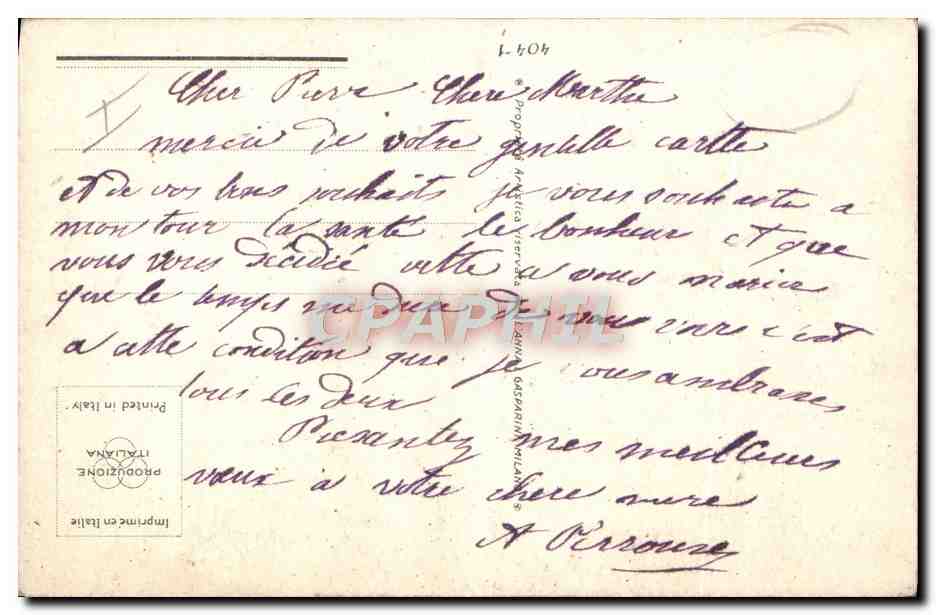 404-1
Cher Pierre Chere Marthe
mercie de votre gentille cartte
et de vos bons souhaits je vous souhaite a
mon tour la santé le bonheur et que
vous vous décidié cette a vous marier
que le temps me dure de vous voir c'est
a cette condition que je vous ambrases
tous les deux
Presantez mes meilleurs
veux a votre chere mere
A
CPAPHIL
© Proprietà Artistica riservata ANNA GASPARINI MILANO ©
Printed in Italy
PRODUZIONE
ITALIANA
Imprimé en Italie